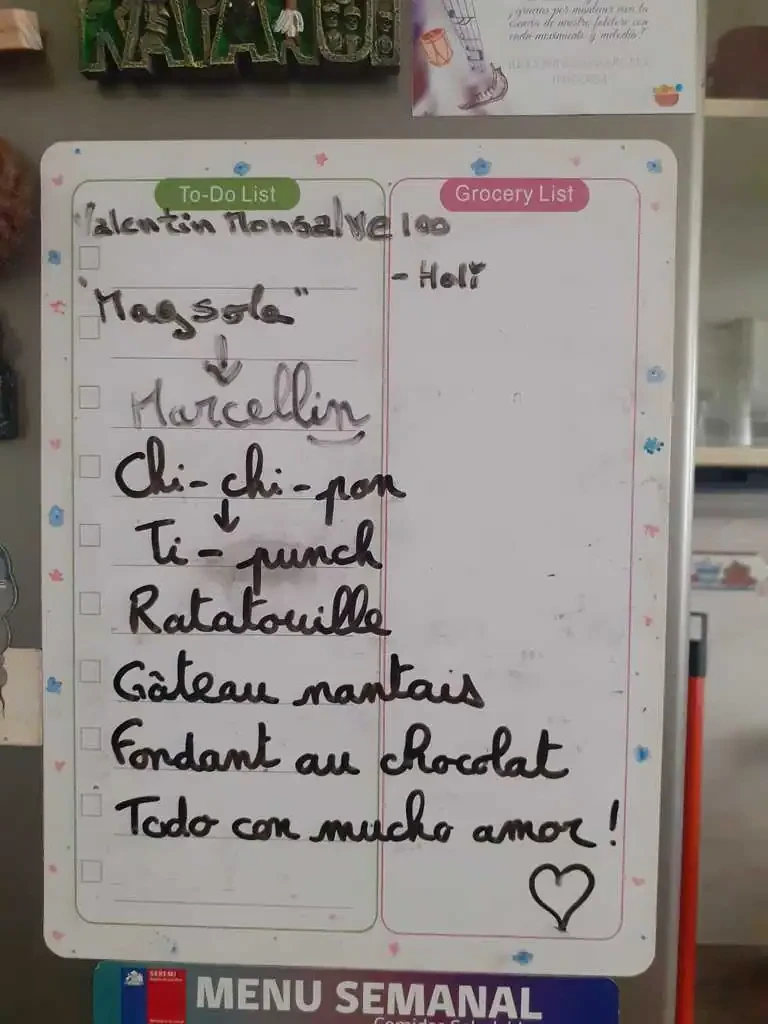 ¡gracias por mantener viva la
esencia de nuestro folclore con
cada movimiento y melodía!"
To-Do List
Grocery List
Valentin Monsalve 100
- Holi
"Magsola"
↓
Marcellin
Chi-chi-pon
↓
Ti-punch
Ratatouille
Gâteau nantais
Fondant au chocolat
Todo con mucho amor!
SEREMI
MENU SEMANAL